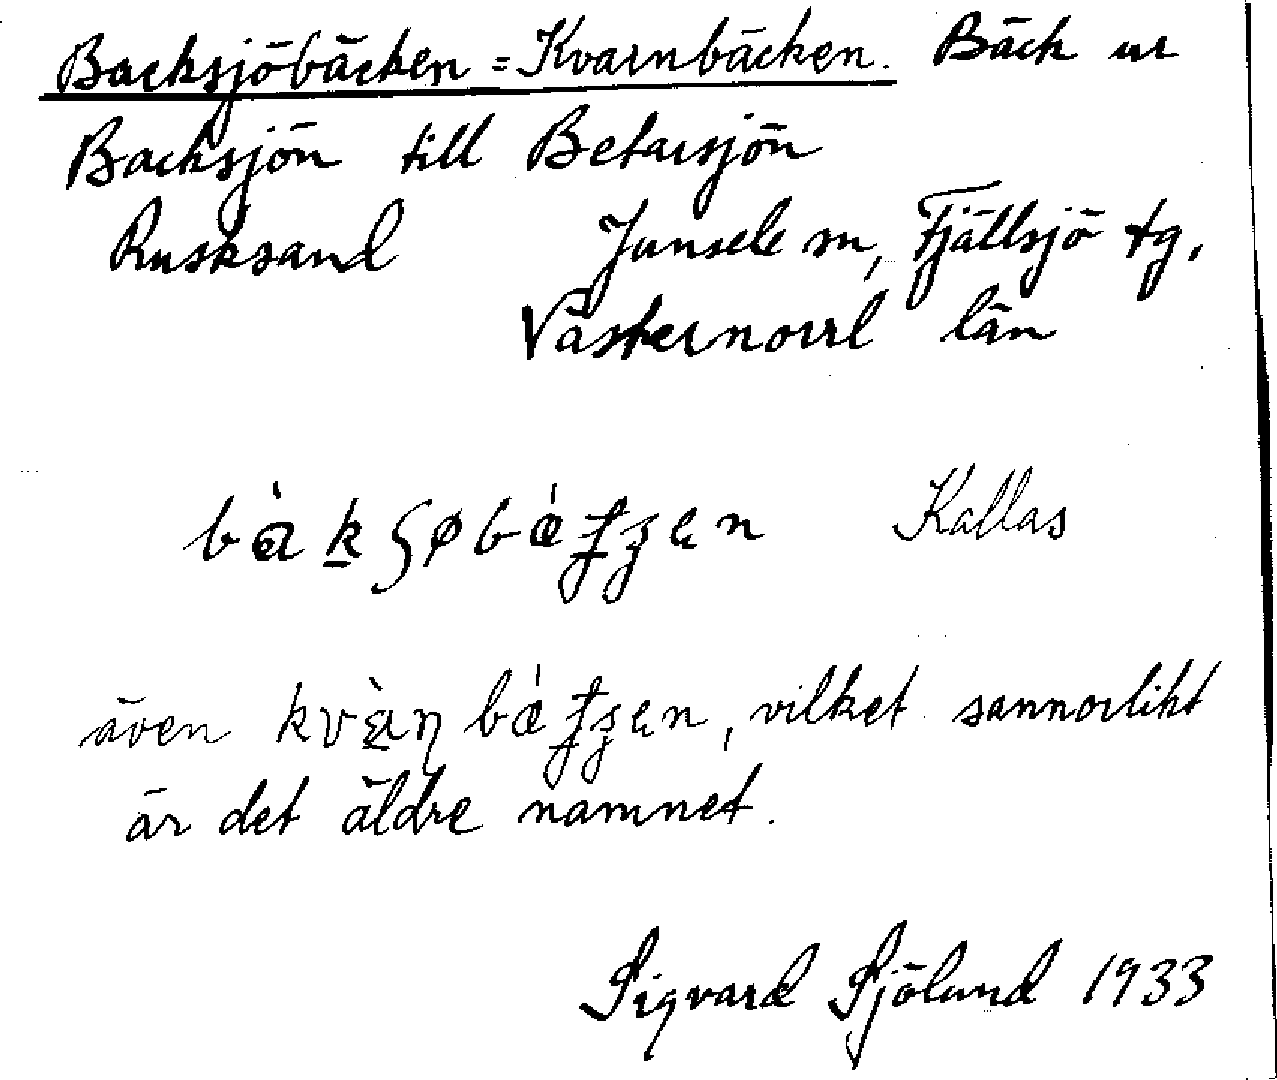 Backsjöbäcken = Kvarnbäcken. Bäck ur
Backsjön till Betarsjön
Rusksand Junsele sn, Fjällsjö tg,
Västernorrl län
Kallas
även , vilket sannorlikt
är det äldre namnet.
Sigvard Sjölund 1933